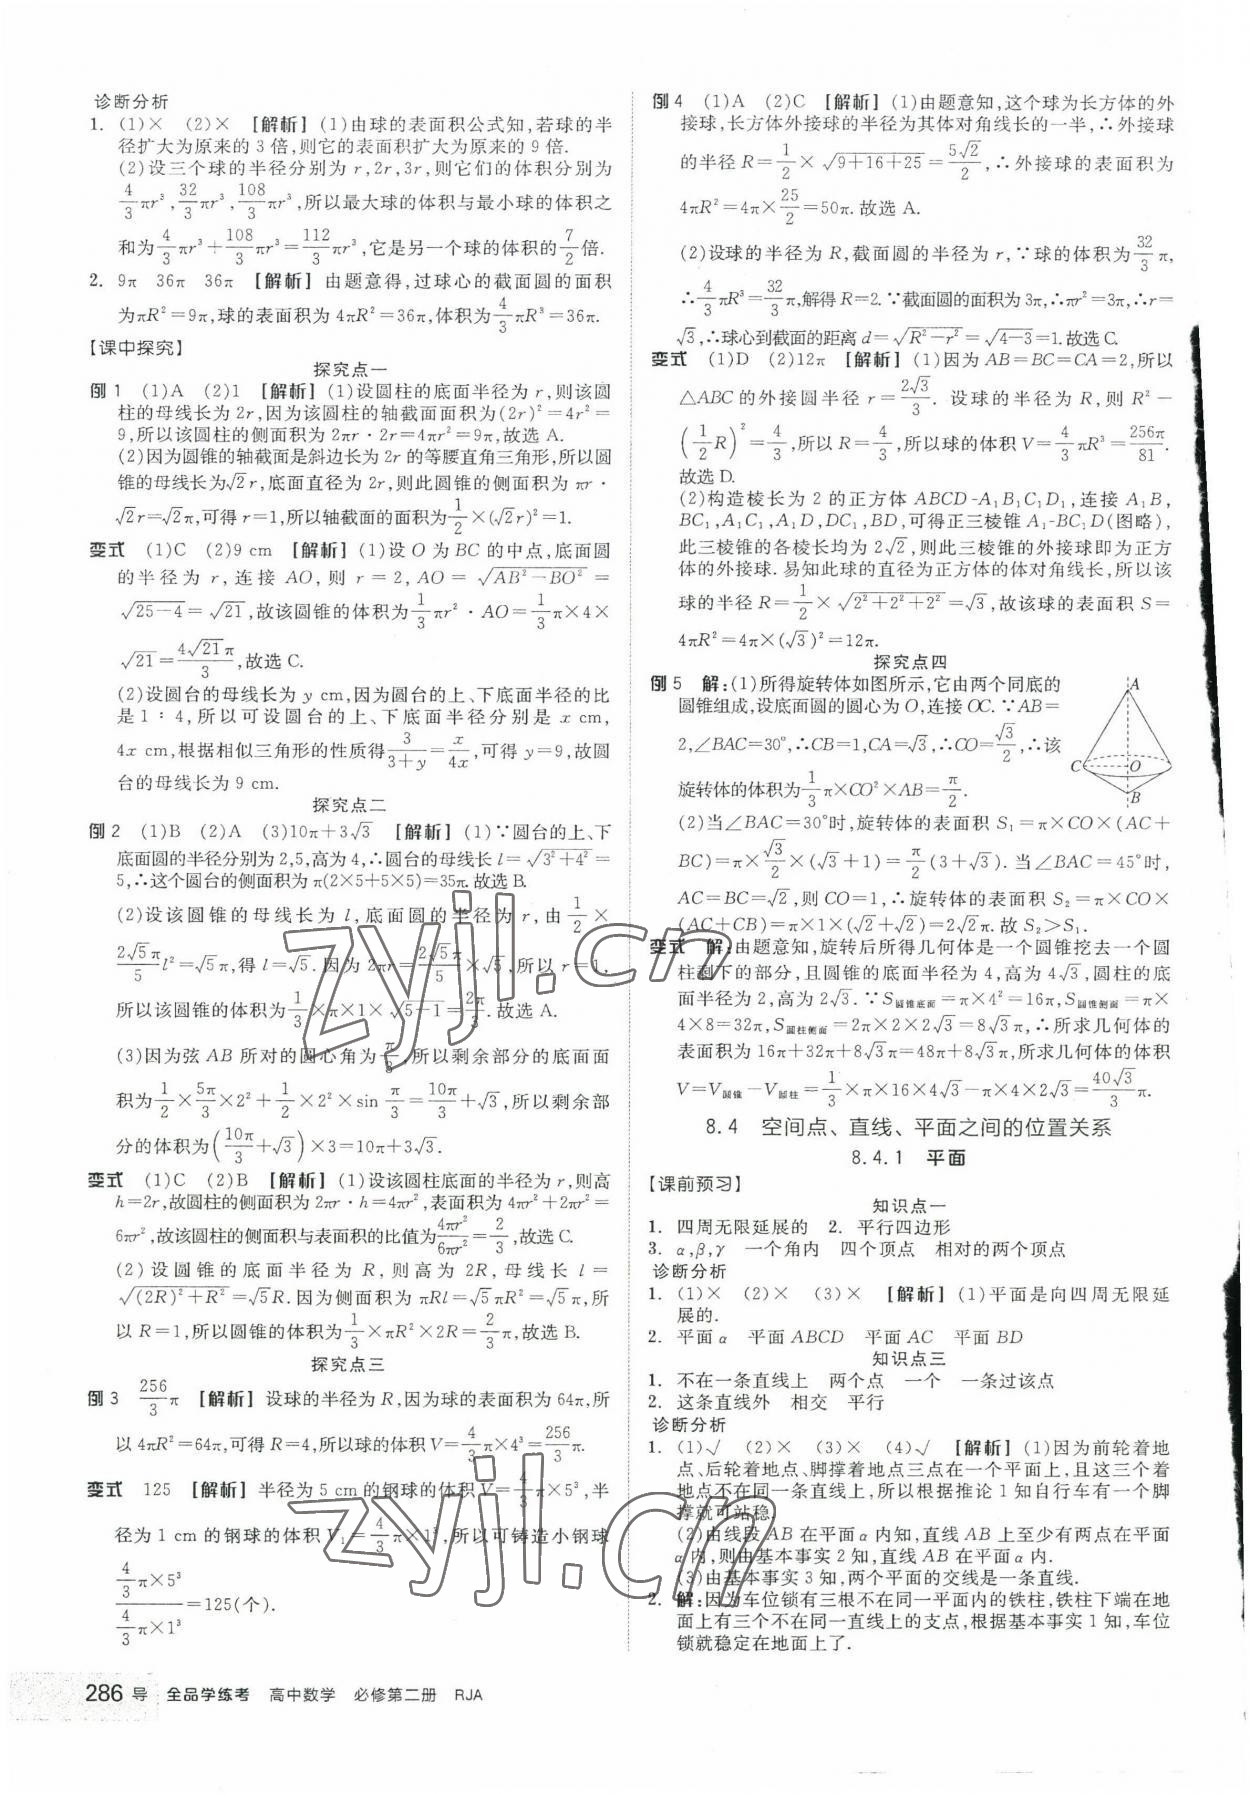 诊断分析
1. (1)× (2)× [解析] (1)由球的表面积公式知,若球的半
径扩大为原来的 3 倍,则它的表面积扩大为原来的 9 倍.
(2)设三个球的半径分别为 r,2r,3r,则它们的体积分别为
4/3πr³,32/3πr³,108/3πr³,所以最大球的体积与最小球的体积之
和为4/3πr³+108/3πr³=112/3πr³,它是另一个球的体积的7/2倍.
2. 9π 36π 36π [解析] 由题意得,过球心的截面圆的面积
为πR²=9π,球的表面积为 4πR²=36π,体积为4/3πR³=36π.
【课中探究】
探究点一
例 1 (1)A (2)1 [解析] (1)设圆柱的底面半径为 r,则该圆
柱的母线长为 2r,因为该圆柱的轴截面面积为(2r)²=4r²=
9,所以该圆柱的侧面积为 2πr·2r=4πr²=9π,故选 A.
(2)因为圆锥的轴截面是斜边长为 2r 的等腰直角三角形,所以圆
锥的母线长为√2r,底面直径为 2r,则此圆锥的侧面积为 πr·
√2r=√2π,可得 r=1,所以轴截面的面积为1/2×(√2r)²=1.
变式 (1)C (2)9 cm [解析] (1)设 O 为 BC 的中点,底面圆
的半径为 r,连接 AO,则 r=2,AO=√(AB²-BO²)=
√(25-4)=√21,故该圆锥的体积为1/3πr²·AO=1/3π×4×
√21=4√21π/3,故选 C.
(2)设圆台的母线长为 y cm,因为圆台的上、下底面半径的比
是 1∶4,所以可设圆台的上、下底面半径分别是 x cm,
4x cm,根据相似三角形的性质得3/(3+y)=x/4x,可得 y=9,故圆
台的母线长为 9 cm.
探究点二
例 2 (1)B (2)A (3)10π+3√3 [解析] (1)∵圆台的上、下
底面圆的半径分别为 2,5,高为 4,∴圆台的母线长 l=√(3²+4²)=
5,∴这个圆台的侧面积为 π(2×5+5×5)=35π.故选 B.
(2)设该圆锥的母线长为 l,底面圆的半径为 r,由 1/2×
2√5π/5 l²=√5π,得 l=√5. 因为 2πr=2√5π/5×√5,所以 r=1,
所以该圆锥的体积为1/3×π×1×√(5-1)=2π/3.故选 A.
(3)因为弦 AB 所对的圆心角为π/3,所以剩余部分的底面面
积为1/2×5π/3×2²+1/2×2²×sin π/3=10π/3+√3,所以剩余部
分的体积为(10π/3+√3)×3=10π+3√3.
变式 (1)C (2)B [解析] (1)设该圆柱底面的半径为 r,则高
h=2r,故圆柱的侧面积为 2πr·h=4πr²,表面积为 4πr²+2πr²=
6πr²,故该圆柱的侧面积与表面积的比值为4πr²/6πr²=2/3,故选 C.
(2)设圆锥的底面半径为 R,则高为 2R,母线长 l=
√((2R)²+R²)=√5R.因为侧面积为 πRl=√5πR²=√5π,所
以 R=1,所以圆锥的体积为1/3×πR²×2R=2/3π,故选 B.
探究点三
例 3 256/3π [解析] 设球的半径为 R,因为球的表面积为 64π,所
以 4πR²=64π,可得 R=4,所以球的体积 V=4/3π×4³=256/3π.
变式 125 [解析] 半径为 5 cm的钢球的体积 V=4/3π×5³,半
径为 1 cm 的钢球的体积 V₁=4/3π×1³,所以可铸造小钢球
(4/3π×5³)/(4/3π×1³)=125(个).
例 4 (1)A (2)C [解析] (1)由题意知,这个球为长方体的外
接球,长方体外接球的半径为其体对角线长的一半,∴外接球
的半径 R=1/2×√(9+16+25)=5√2/2,∴外接球的表面积为
4πR²=4π×25/2=50π.故选 A.
(2)设球的半径为 R,截面圆的半径为 r,∵球的体积为32/3π,
∴4/3πR³=32/3π,解得 R=2.∵截面圆的面积为 3π,∴πr²=3π,∴r=
√3,∴球心到截面的距离 d=√(R²-r²)=√(4-3)=1.故选 C.
变式 (1)D (2)12π [解析] (1)因为 AB=BC=CA=2,所以
△ABC 的外接圆半径 r=2√3/3. 设球的半径为 R,则 R²-
(1/2R)²=4/3,所以 R=4/3,所以球的体积 V=4/3πR³=256π/81.
故选 D.
(2)构造棱长为 2 的正方体 ABCD-A₁B₁C₁D₁,连接 A₁B,
BC₁,A₁C₁,A₁D,DC₁,BD,可得正三棱锥 A₁-BC₁D(图略),
此三棱锥的各棱长均为 2√2,则此三棱锥的外接球即为正方
体的外接球. 易知此球的直径为正方体的体对角线长,所以该
球的半径 R=1/2×√(2²+2²+2²)=√3,故该球的表面积 S=
4πR²=4π×(√3)²=12π.
探究点四
例 5 解:(1)所得旋转体如图所示,它由两个同底的
圆锥组成,设底面圆的圆心为 O,连接 OC.∵AB=
2,∠BAC=30°,∴CB=1,CA=√3,∴CO=√3/2,∴该
旋转体的体积为1/3π×CO²×AB=π/2.
A
C
O
B
(2)当∠BAC=30°时,旋转体的表面积 S₁=π×CO×(AC+
BC)=π×√3/2×(√3+1)=π/2(3+√3). 当∠BAC=45°时,
AC=BC=√2,则 CO=1,∴旋转体的表面积 S₂=π×CO×
(AC+CB)=π×1×(√2+√2)=2√2π.故 S₂>S₁.
变式 解:由题意知,旋转后所得几何体是一个圆锥挖去一个圆
柱剩下的部分,且圆锥的底面半径为 4,高为 4√3,圆柱的底
面半径为 2,高为 2√3.∵S圆锥底面=π×4²=16π,S圆锥侧面=π×
4×8=32π,S圆柱侧面=2π×2×2√3=8√3π,∴所求几何体的
表面积为 16π+32π+8√3π=48π+8√3π,所求几何体的体积
V=V圆锥-V圆柱=1/3×π×16×4√3-π×4×2√3=40√3/3π.
8.4 空间点、直线、平面之间的位置关系
8.4.1 平面
【课前预习】
知识点一
1. 四周无限延展的 2. 平行四边形
3. α,β,γ 一个角内 四个顶点 相对的两个顶点
诊断分析
1. (1)× (2)× (3)× [解析] (1)平面是向四周无限延
展的.
2. 平面 α 平面 ABCD 平面 AC 平面 BD
知识点三
1. 不在一条直线上 两个点 一个 一条过该点
2. 这条直线外 相交 平行
诊断分析
1. (1)√ (2)× (3)× (4)√ [解析] (1)因为前轮着地
点、后轮着地点、脚撑着地点三点在一个平面上,且这三个着
地点不在同一条直线上,所以根据推论 1 知自行车有一个脚
撑就可站稳.
(2)由线段 AB 在平面 α 内知,直线 AB 上至少有两点在平面
α 内,则由基本事实 2 知,直线 AB 在平面 α 内.
(3)由基本事实 3 知,两个平面的交线是一条直线.
2. 解:因为车位锁有三根不在同一平面内的铁柱,铁柱下端在地
面上有三个不在同一直线上的支点,根据基本事实 1 知,车位
锁就稳定在地面上了.
286 导 全品学练考 高中数学 必修第二册 RJA
zyjl.cn
zyjl.cn